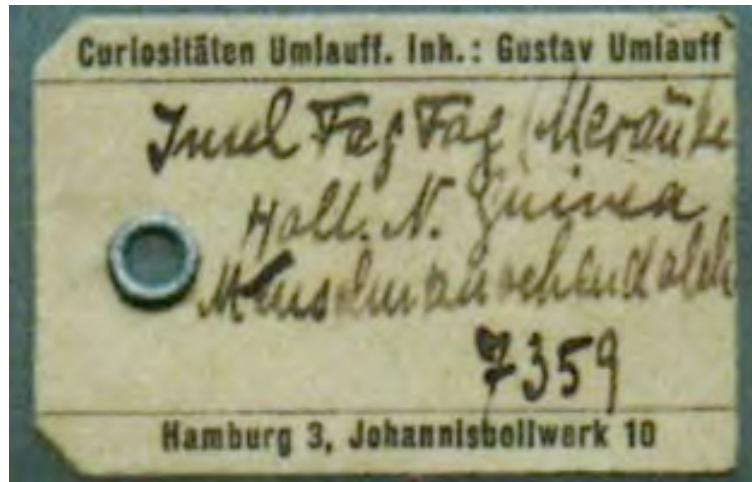 Curiositäten Umlauff. Inh.: Gustav Umlauff
Insel Fag Fag (Merauke
Holl. N. Guinea
7359
Hamburg 3, Johannisbollwerk 10